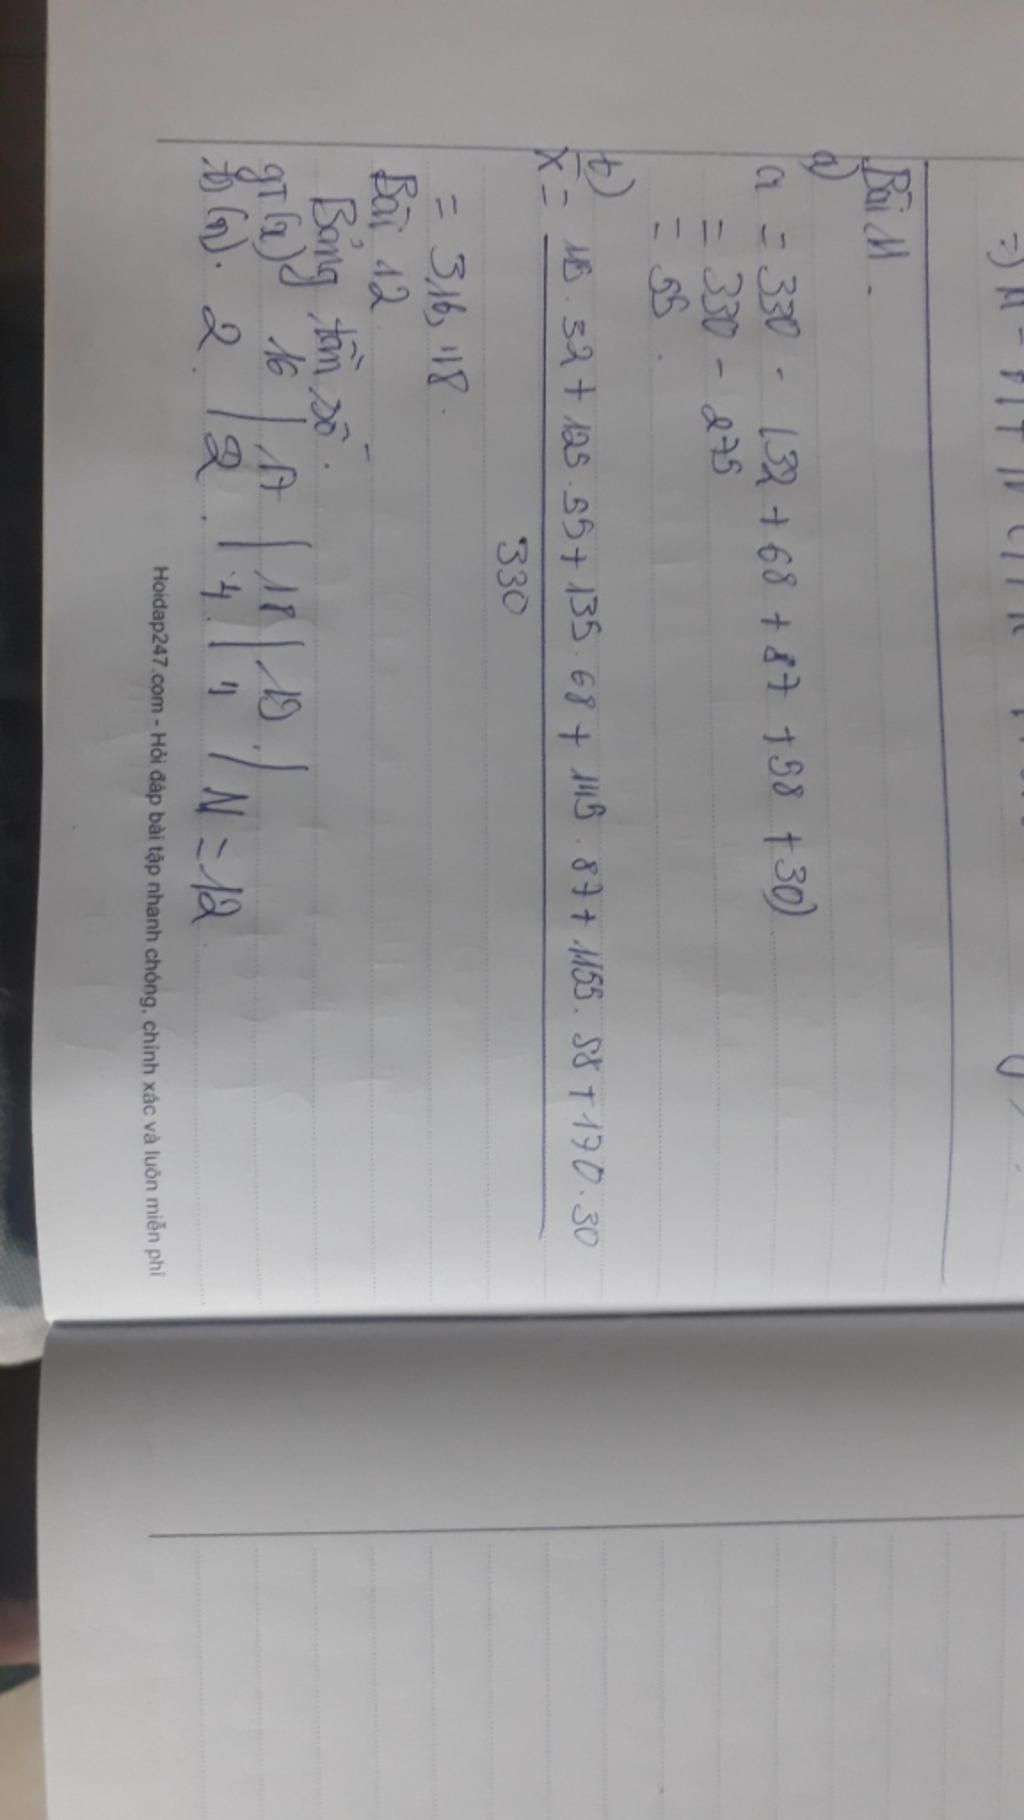 Bài 11.
a)
a = 330 - (32 + 68 + 87 + 58 + 30)
= 330 - 275
= 55.
b)
X̄ = 115 . 32 + 125 . 55 + 135 . 68 + 145 . 87 + 1155 . 58 + 170 . 30
330
= 316,118.
Bài 12.
Bảng tần số.
gT (x) 16 | 17 | 18 | 19 |
ts (n). 2 | 2 . | 4 | 4 | N = 12
Hoidap247.com - Hỏi đáp bài tập nhanh chóng, chính xác và luôn miễn phí